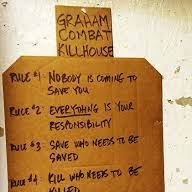 GRAHAM
COMBAT
KILLHOUSE
RULE #1: NOBODY IS COMING TO
SAVE YOU
RULE #2: EVERYTHING IS YOUR
RESPONSIBILITY
RULE #3: SAVE WHO NEEDS TO BE
SAVED
RULE #4: KILL WHO NEEDS TO BE
KILLED